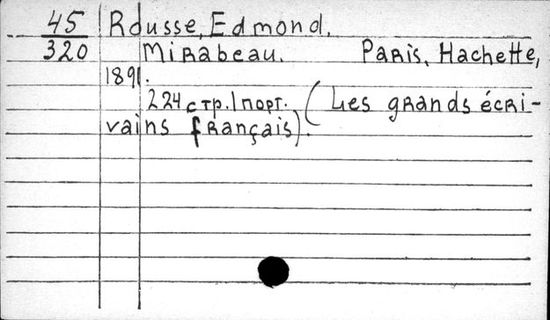 45 Rousse, Edmond.
320 Mirabeau. Paris, Hachette,
1891.
224 стр. 1 порт. (Les grands écri-
vains français).